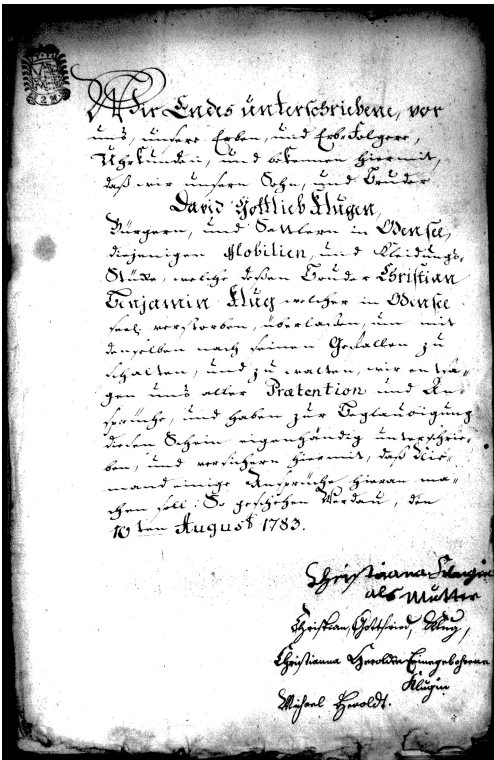 Wir Endes unterschriebene, vor
uns, unsere Erben, und Erbfolgere,
Uhrkunden, und bekennen hiermit,
daß wir unsern Sohn, und Bruder
David Gottlieb Klugen,
Bürgern, und Sattlern in Odensee,
diejenigen Mobilien, und Kleidungs-
Stüke, welche deßen Bruder Christian
Benjamin Klug welcher in Odensee
seel. verstorben, überlaßen, um mit
denselben nach seinen Gefallen zu
schalten, und zu walten, wir entsa-
gen uns aller Prætention und An-
sprüche, und haben zur Beglaubigung
diesen Schein eigenhändig unterschrie-
ben, und versichern hiermit, daß Nie-
mand einige Ansprüche hieran ma-
chen soll. So geschehen Werdau, den
10ten August 1783.
Christiana Klugin
als Mutter
Christian, Gottfried, Klug,
Christianna Heroldin Einegebohrene
Klugin
Michael Heroldt.